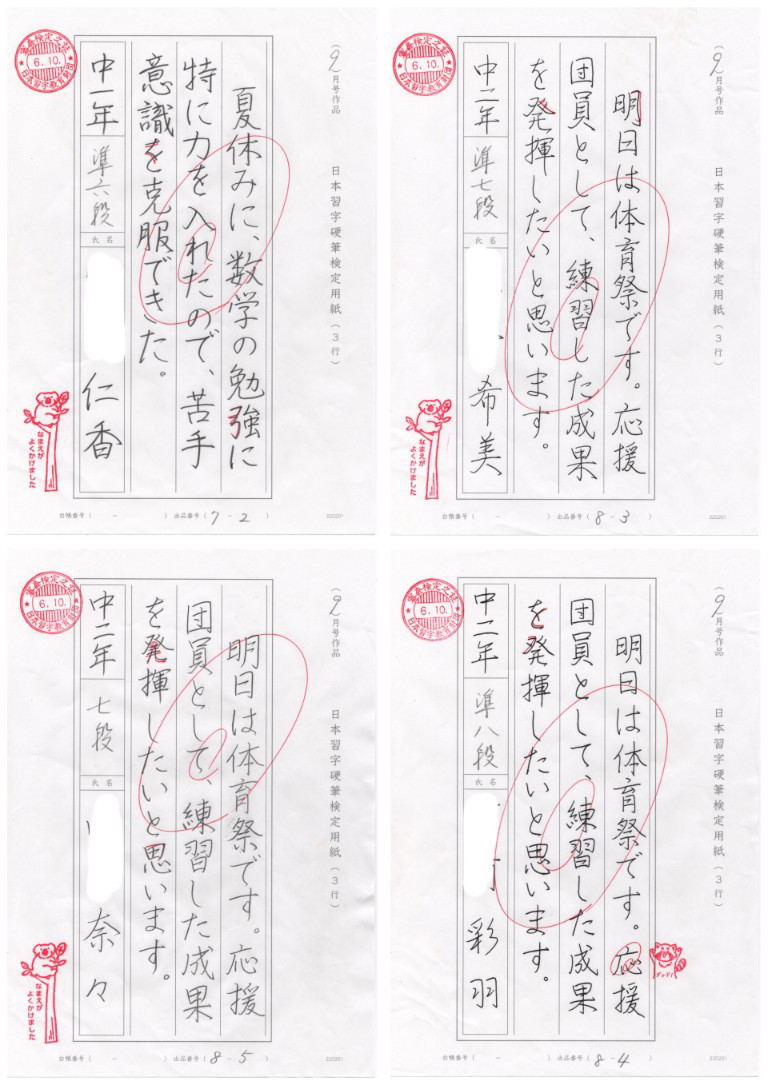 (9月号作品) 日本習字硬筆検定用紙(3行)
夏休みに、数学の勉強に
特に力を入れたので、苦手
意識を克服できた。
中一年 準六段 氏名 仁香
審査検定之証
6.10.
日本習字教育財団
なまえが
よくかけました
台帳番号( - ) 出品番号(7-2) 220201
(9月号作品) 日本習字硬筆検定用紙(3行)
明日は体育祭です。応援
団員として、練習した成果
を発揮したいと思います。
中二年 準七段 氏名 希美
審査検定之証
6.10.
日本習字教育財団
なまえが
よくかけました
台帳番号( - ) 出品番号(8-3) 220201
(9月号作品) 日本習字硬筆検定用紙(3行)
明日は体育祭です。応援
団員として、練習した成果
を発揮したいと思います。
中二年 七段 氏名 奈々
審査検定之証
6.10.
日本習字教育財団
なまえが
よくかけました
台帳番号( - ) 出品番号(8-5) 220201
(9月号作品) 日本習字硬筆検定用紙(3行)
明日は体育祭です。応援
団員として、練習した成果
を発揮したいと思います。
中二年 準八段 氏名 彩羽
審査検定之証
6.10.
日本習字教育財団
台帳番号( - ) 出品番号(8-4) 220201